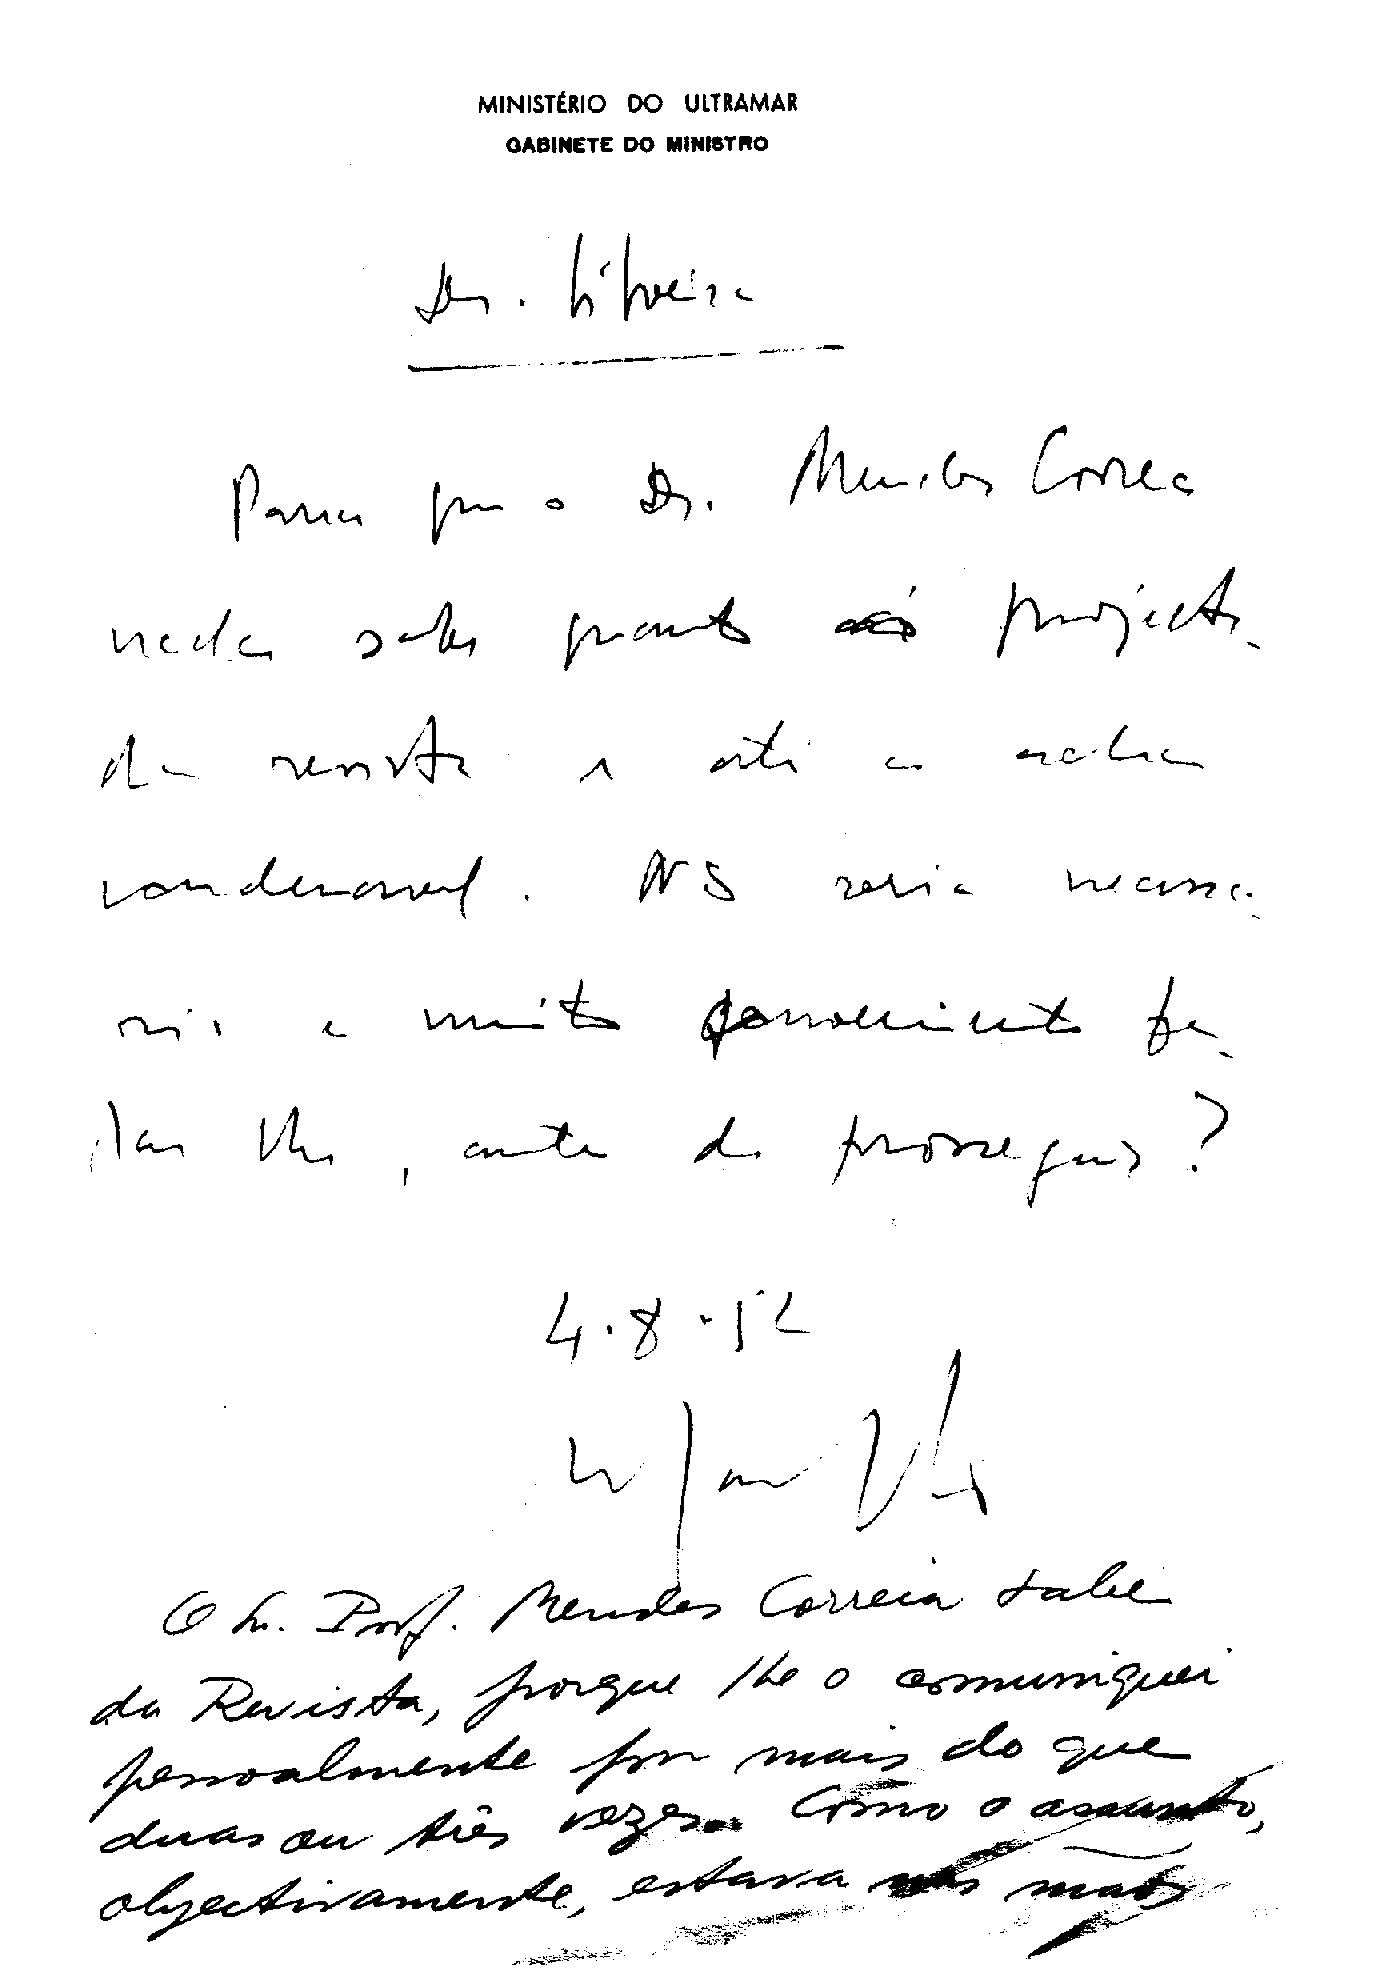 MINISTÉRIO DO ULTRAMAR
GABINETE DO MINISTRO
Dr. Silveira
Parece que o Dr. Mendes Correa
nada sabe quanto ao projecto
da revista e até a acha
condenavel. Não seria necessa-
rio e muito conveniente fa-
lar lhe, antes de prosseguir?
4.8.52
O Sr. Prof. Mendes Correia sabe
da Revista, porque lhe o comuniquei
pessoalmente por mais do que
duas ou três vezes. Como o assunto,
objectivamente, estava nas mãos